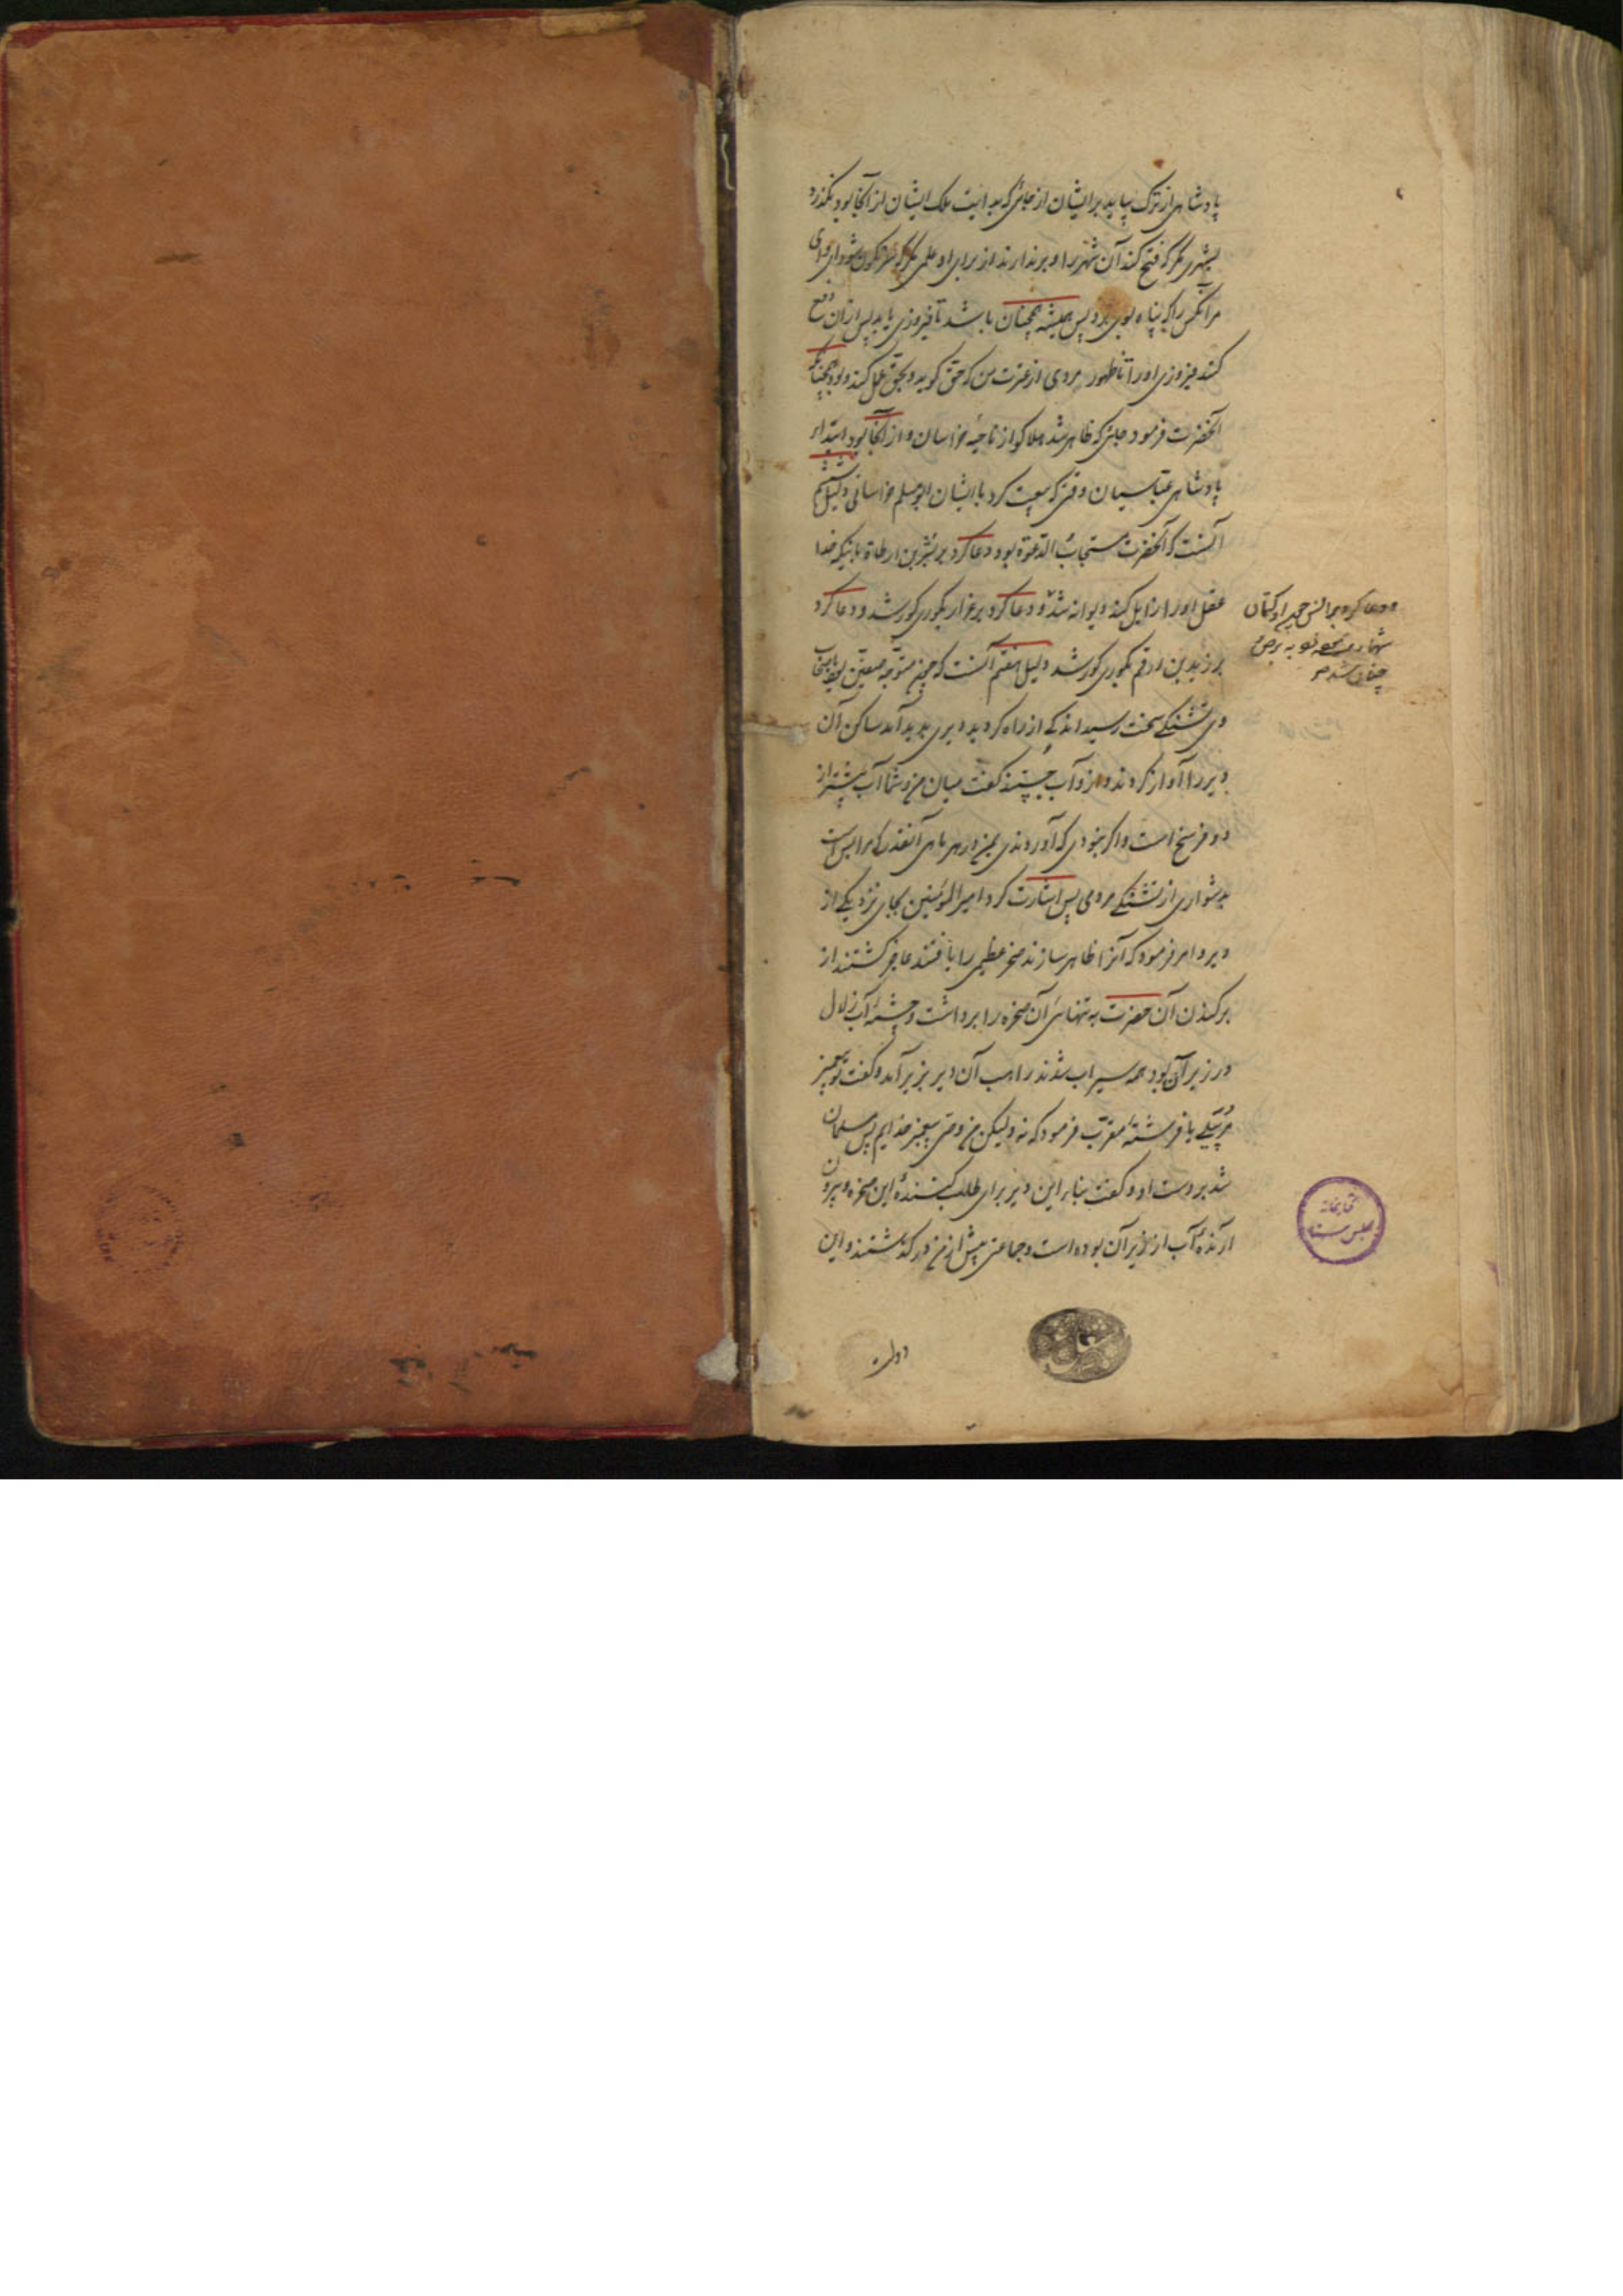 پادشاهی از ترک بیاید بر ایشان از جائی که بدایت ملک ایشان از آنجا بود نگذرد
بشهری مگر که فتح کند آن شهر را و برندارند از برای او علمی مگر که سرنگون شود وای وای
مر آنکس را که پناه بوی برد پس همیشه همچنان باشد تا فیروزی یابد پس از آن دفع
کند فیروزی او را تا ظهور مردی از عترت من که حق گوید و بحق عمل کند و بود همچنانکه
آنحضرت فرمود جائی که ظاهر شد هلاکو از ناحیهٔ خراسان و از آنجا بود ابتداء
پادشاهی عباسیان وقتی که بیعت کرد با ایشان ابومسلم خراسانی دلیل ششم
آنست که آنحضرت مستجاب الدعوة بود دعا کرد بر بسر بن ارطاة باینکه خدا
عقل او را زایل کند دیوانه شد و دعا کرد بر عزار بکوری کور شد و دعا کرد
بر زید بن ارقم بکوری کور شد دلیل هفتم آنست که چون متوجه صفین
تشنگی سخت رسید اندکی از راه گردید دیری پدید آمد ساکن آن
دیر را آواز کردند و ازو آب جستند گفت میان من و شما آب بیشتر از
دو فرسخ است و اگر نبودی که آوردندی بمن در هر ماهی آنقدر که مرا بس است
بدشواری از تشنگی مردمی پس اشارت کرد امیرالمؤمنین بجای نزدیکی از
دیر و امر فرمود که آنرا ظاهر سازند صخره عظیمی را یافتند عاجز گشتند از
برکندن آن حضرت به تنهائی آن صخره را برداشت و چشمهٔ آب زلال
در زیر آن بود همه سیراب شدند راهب آن دیر بزیر آمد و گفت تو پیغمبر
مرسلی یا فرشتهٔ مقرب فرمود که نه ولیکن من وصی پیغمبر خدایم پس مسلمان
شد بر دست او و گفت بنابر این دیر برای طلب کننده این صخره و بیرون
آرنده آب از زیر آن بوده است و جماعتی پیش از من درگذشتند و این
و دعا کرد بر انس چون او کتمان
شهادت
چنان شد
کتابخانه
مجلس سنا
دولت